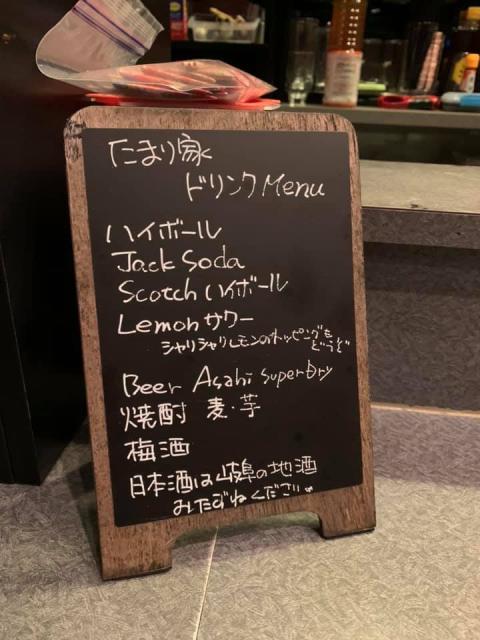 たまり家
ドリンクMenu
ハイボール
Jack Soda
Scotch ハイボール
Lemonサワー
シャリシャリレモンのトッピングも
どうぞ
Beer Asahi SuperDry
焼酎 麦・芋
梅酒
日本酒は岐阜の地酒
おたずねください